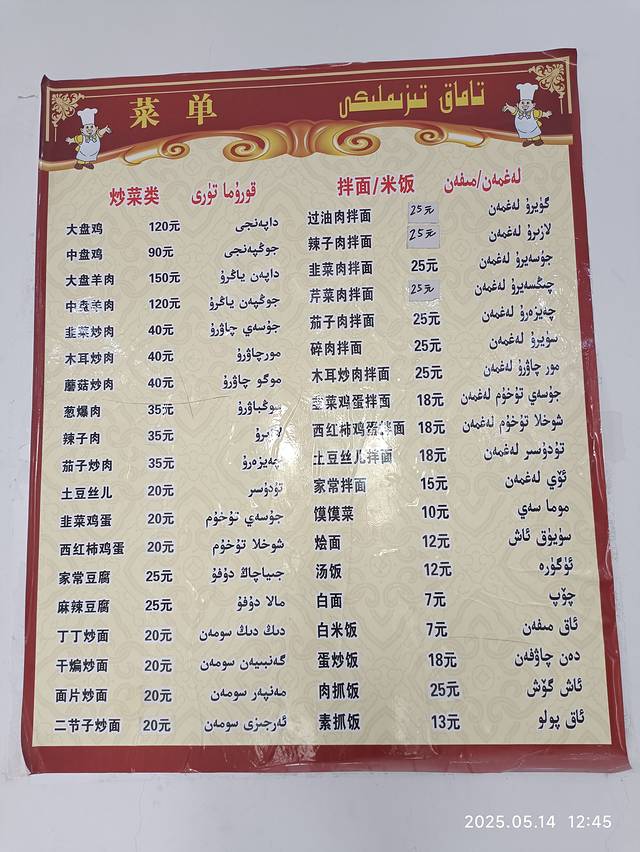 菜单 تاماق تىزىملىكى
炒菜类 قورۇما تۈرى
大盘鸡 120元 داپەنجى
中盘鸡 90元 جوڭپەنجى
大盘羊肉 150元 داپەن ياڭرۇ
中盘羊肉 120元 جوڭپەن ياڭرۇ
韭菜炒肉 40元 جۈسەي چاۋرۇ
木耳炒肉 40元 مورچاۋرۇ
蘑菇炒肉 40元 موگو چاۋرۇ
葱爆肉 35元 سوڭباۋرۇ
辣子肉 35元 لازىرۇ
茄子炒肉 35元 چەيزەرۇ
土豆丝儿 20元 تۇدۇسىر
韭菜鸡蛋 20元 جۈسەي تۇخۇم
西红柿鸡蛋 20元 شوخلا تۇخۇم
家常豆腐 25元 جىياچاڭ دۇفۇ
麻辣豆腐 25元 مالا دۇفۇ
丁丁炒面 20元 دىڭ دىڭ سومەن
干煸炒面 20元 گەنبىيەن سومەن
面片炒面 20元 مەنپەر سومەن
二节子炒面 20元 ئەرجىزى سومەن
拌面/米饭 لەغمەن/مىفەن
过油肉拌面 25元 گۇيرۇ لەغمەن
辣子肉拌面 25元 لازىرۇ لەغمەن
韭菜肉拌面 25元 جۈسەيرۇ لەغمەن
芹菜肉拌面 25元 چىڭسەيرۇ لەغمەن
茄子肉拌面 25元 چەيزەرۇ لەغمەن
碎肉拌面 25元 سۈيرۇ لەغمەن
木耳炒肉拌面 25元 مور چاۋرۇ لەغمەن
韭菜鸡蛋拌面 18元 جۈسەي تۇخۇم لەغمەن
西红柿鸡蛋拌面 18元 شوخلا تۇخۇم لەغمەن
土豆丝儿拌面 18元 تۇدۇسىر لەغمەن
家常拌面 15元 ئۆي لەغمەن
馍馍菜 10元 موما سەي
烩面 12元 سۇيۇق ئاش
汤饭 12元 ئۈگۈرە
白面 7元 چۆپ
白米饭 7元 ئاق مىفەن
蛋炒饭 18元 دەن چاۋفەن
肉抓饭 25元 ئاش گۆش
素抓饭 13元 ئاق پولو
2025.05.14 12:45